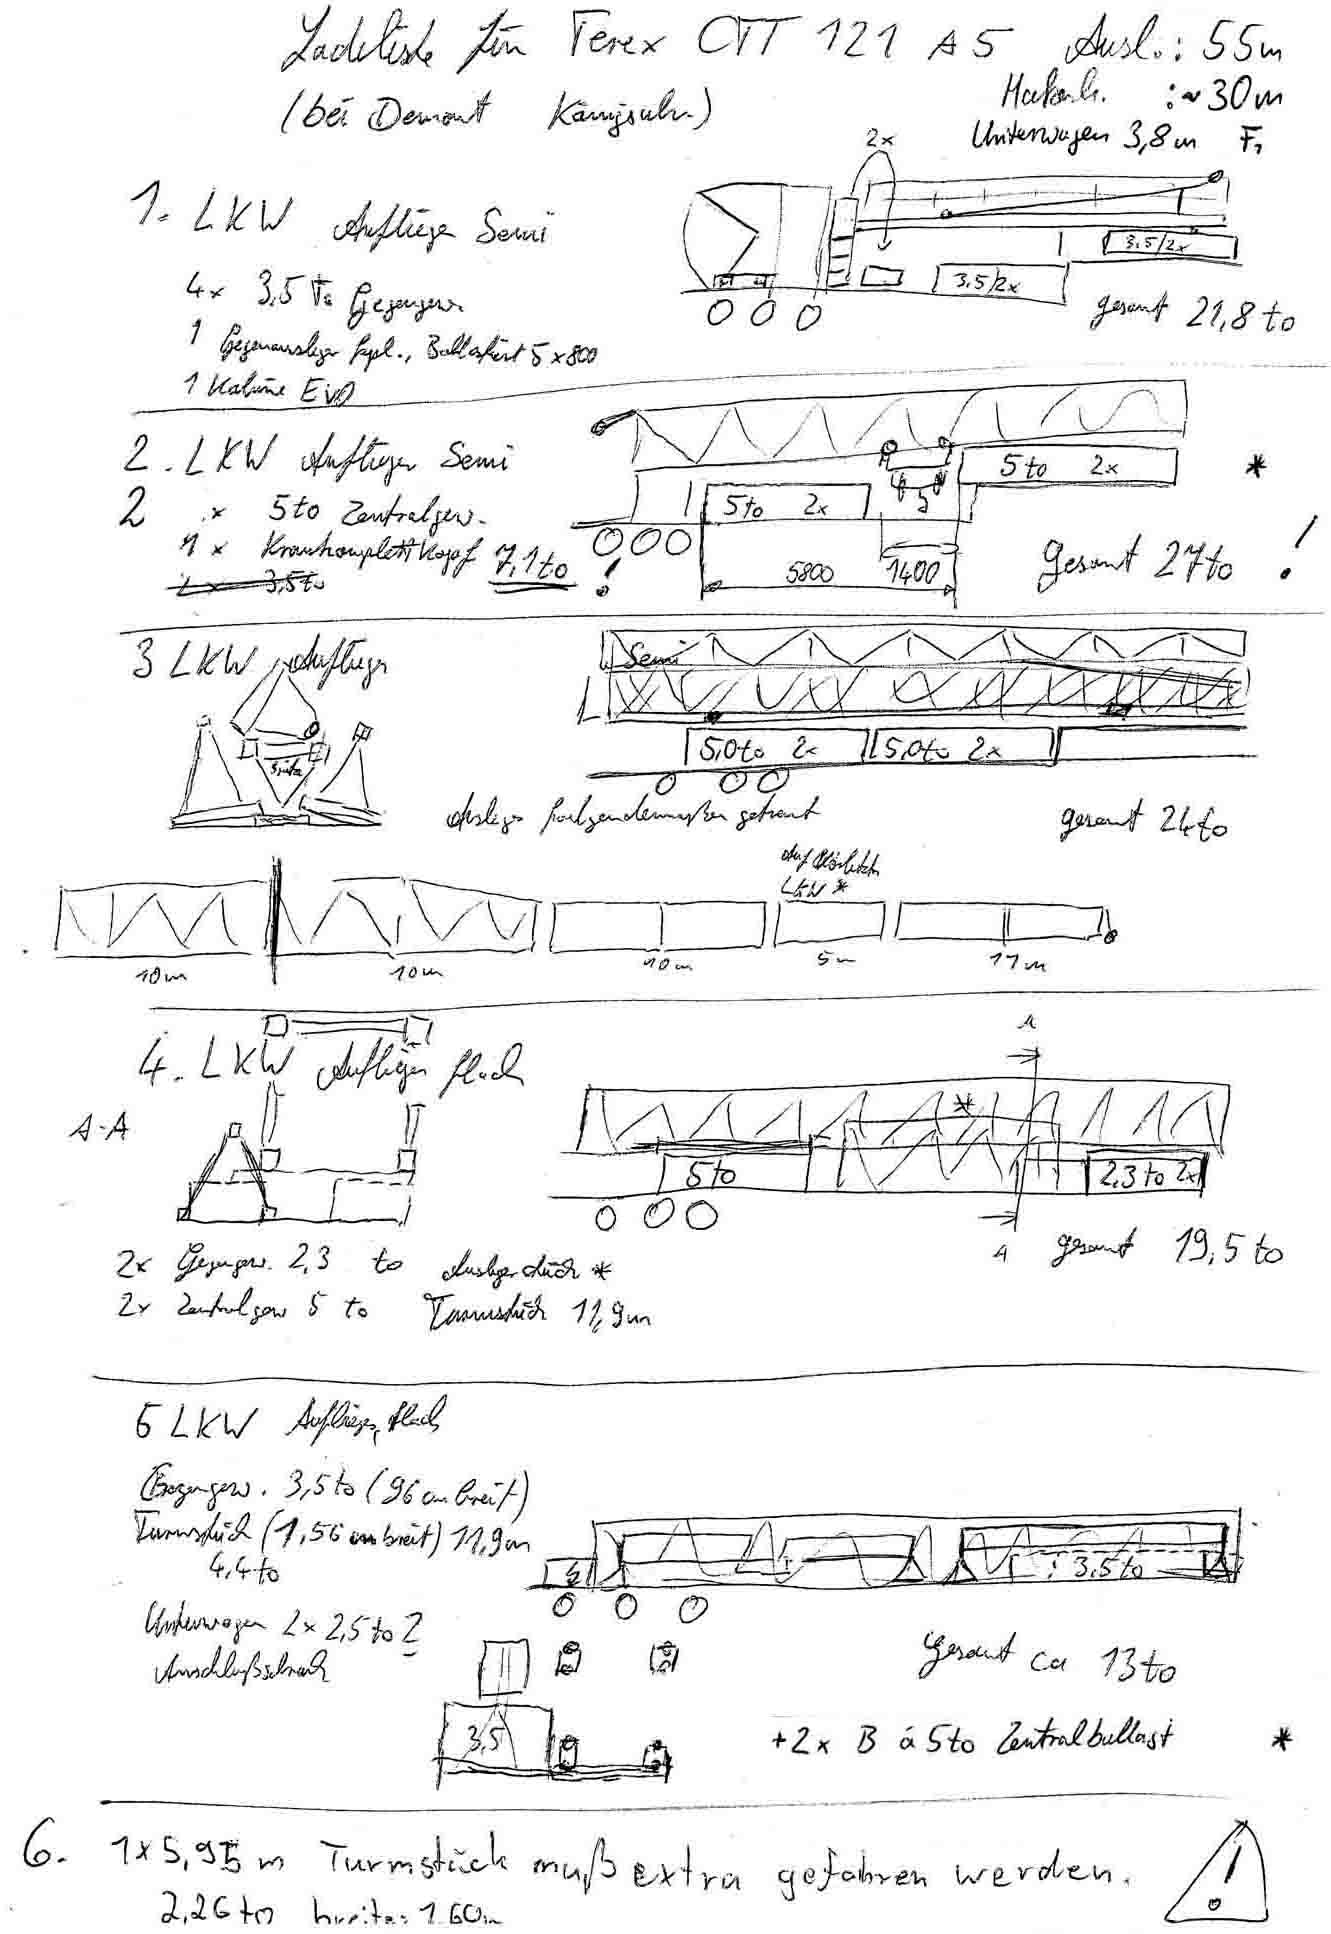 Ladeliste für Terex CTT 121 A5 Ausl.: 55m
(bei Demont Königsw.) Hakenh. :~30m
Unterwagen 3,8m F,
2x
1. LKW Auflieger Semi
4x 3,5 To Gegengew.
3,5/2x
3,5/2x
gesamt 21,8 to
1 Gegenausleger kpl., 5x800
1 Kabine EVO
2. LKW Auflieger Semi
5 to 2x *
2 x 5to Zentralgew.
5to 2x
1 x Krankomplettkopf 7,1to !
2 x 3,5to
5800 1400
gesamt 27to !
3 LKW Auflieger Semi
Spitze
5,0to 2x 5,0to 2x
Ausleger folgendermaßen getrennt
gesamt 24to
auf
LKW *
10m 10m 10m 5m 11m
4. LKW Auflieger flach
A
A-A
*
5to 2,3 to 2x
A
gesamt 19,5 to
2x Gegengew. 2,3 to Auslegerstück *
2x Zentralgew 5 to Turmstück 11,9m
5 LKW Auflieger, flach
Gegengew. 3,5to (96cm breit)
Turmstück (1,56cm breit) 11,9m
4,4to
3,5to
Unterwagen 2x 2,5to 2
Anschlußschrank
gesamt ca 13to
3,5
+2x B á 5to Zentralballast *
6. 1x5,95m Turmstück muß extra gefahren werden. !
2,26to breite: 1,60m